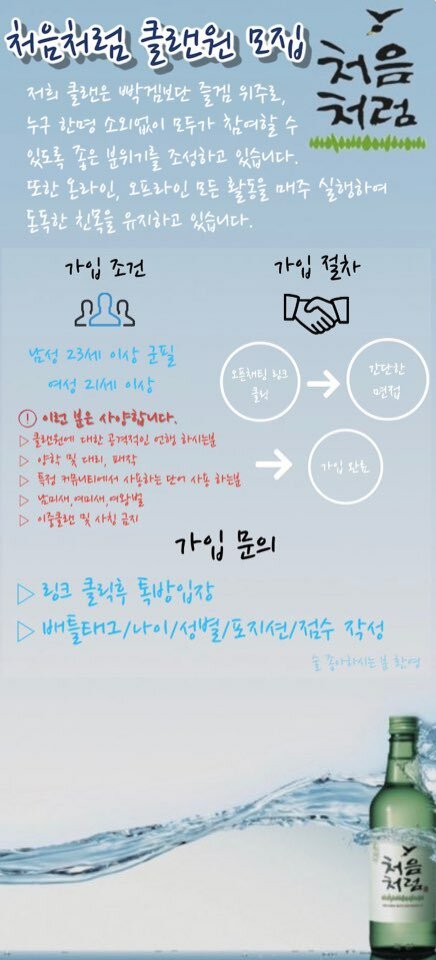 처음처럼 클랜원 모집
처음
처럼
저희 클랜은 빡겜보단 즐겜 위주로,
누구 한명 소외없이 모두가 참여할 수
있도록 좋은 분위기를 조성하고 있습니다.
또한 온라인, 오프라인 모든 활동을 매주 실행하여
돈독한 친목을 유지하고 있습니다.
가입 조건
남성 23세 이상 군필
여성 21세 이상
! 이런 분은 사양합니다.
▷ 클랜원에 대한 공격적인 언행 하시는분
▷ 양학 및 대리, 패작
▷ 특정 커뮤니티에서 사용하는 단어 사용 하는분
▷ 남미새,여미새,여왕벌
▷ 이중클랜 및 사칭 금지
가입 절차
오픈채팅 링크
클릭
간단한
면접
가입 완료
가입 문의
▷ 링크 클릭후 톡방입장
▷ 배틀태그/나이/성별/포지션/점수 작성
술 좋아하시는 분 환영
처음
처럼